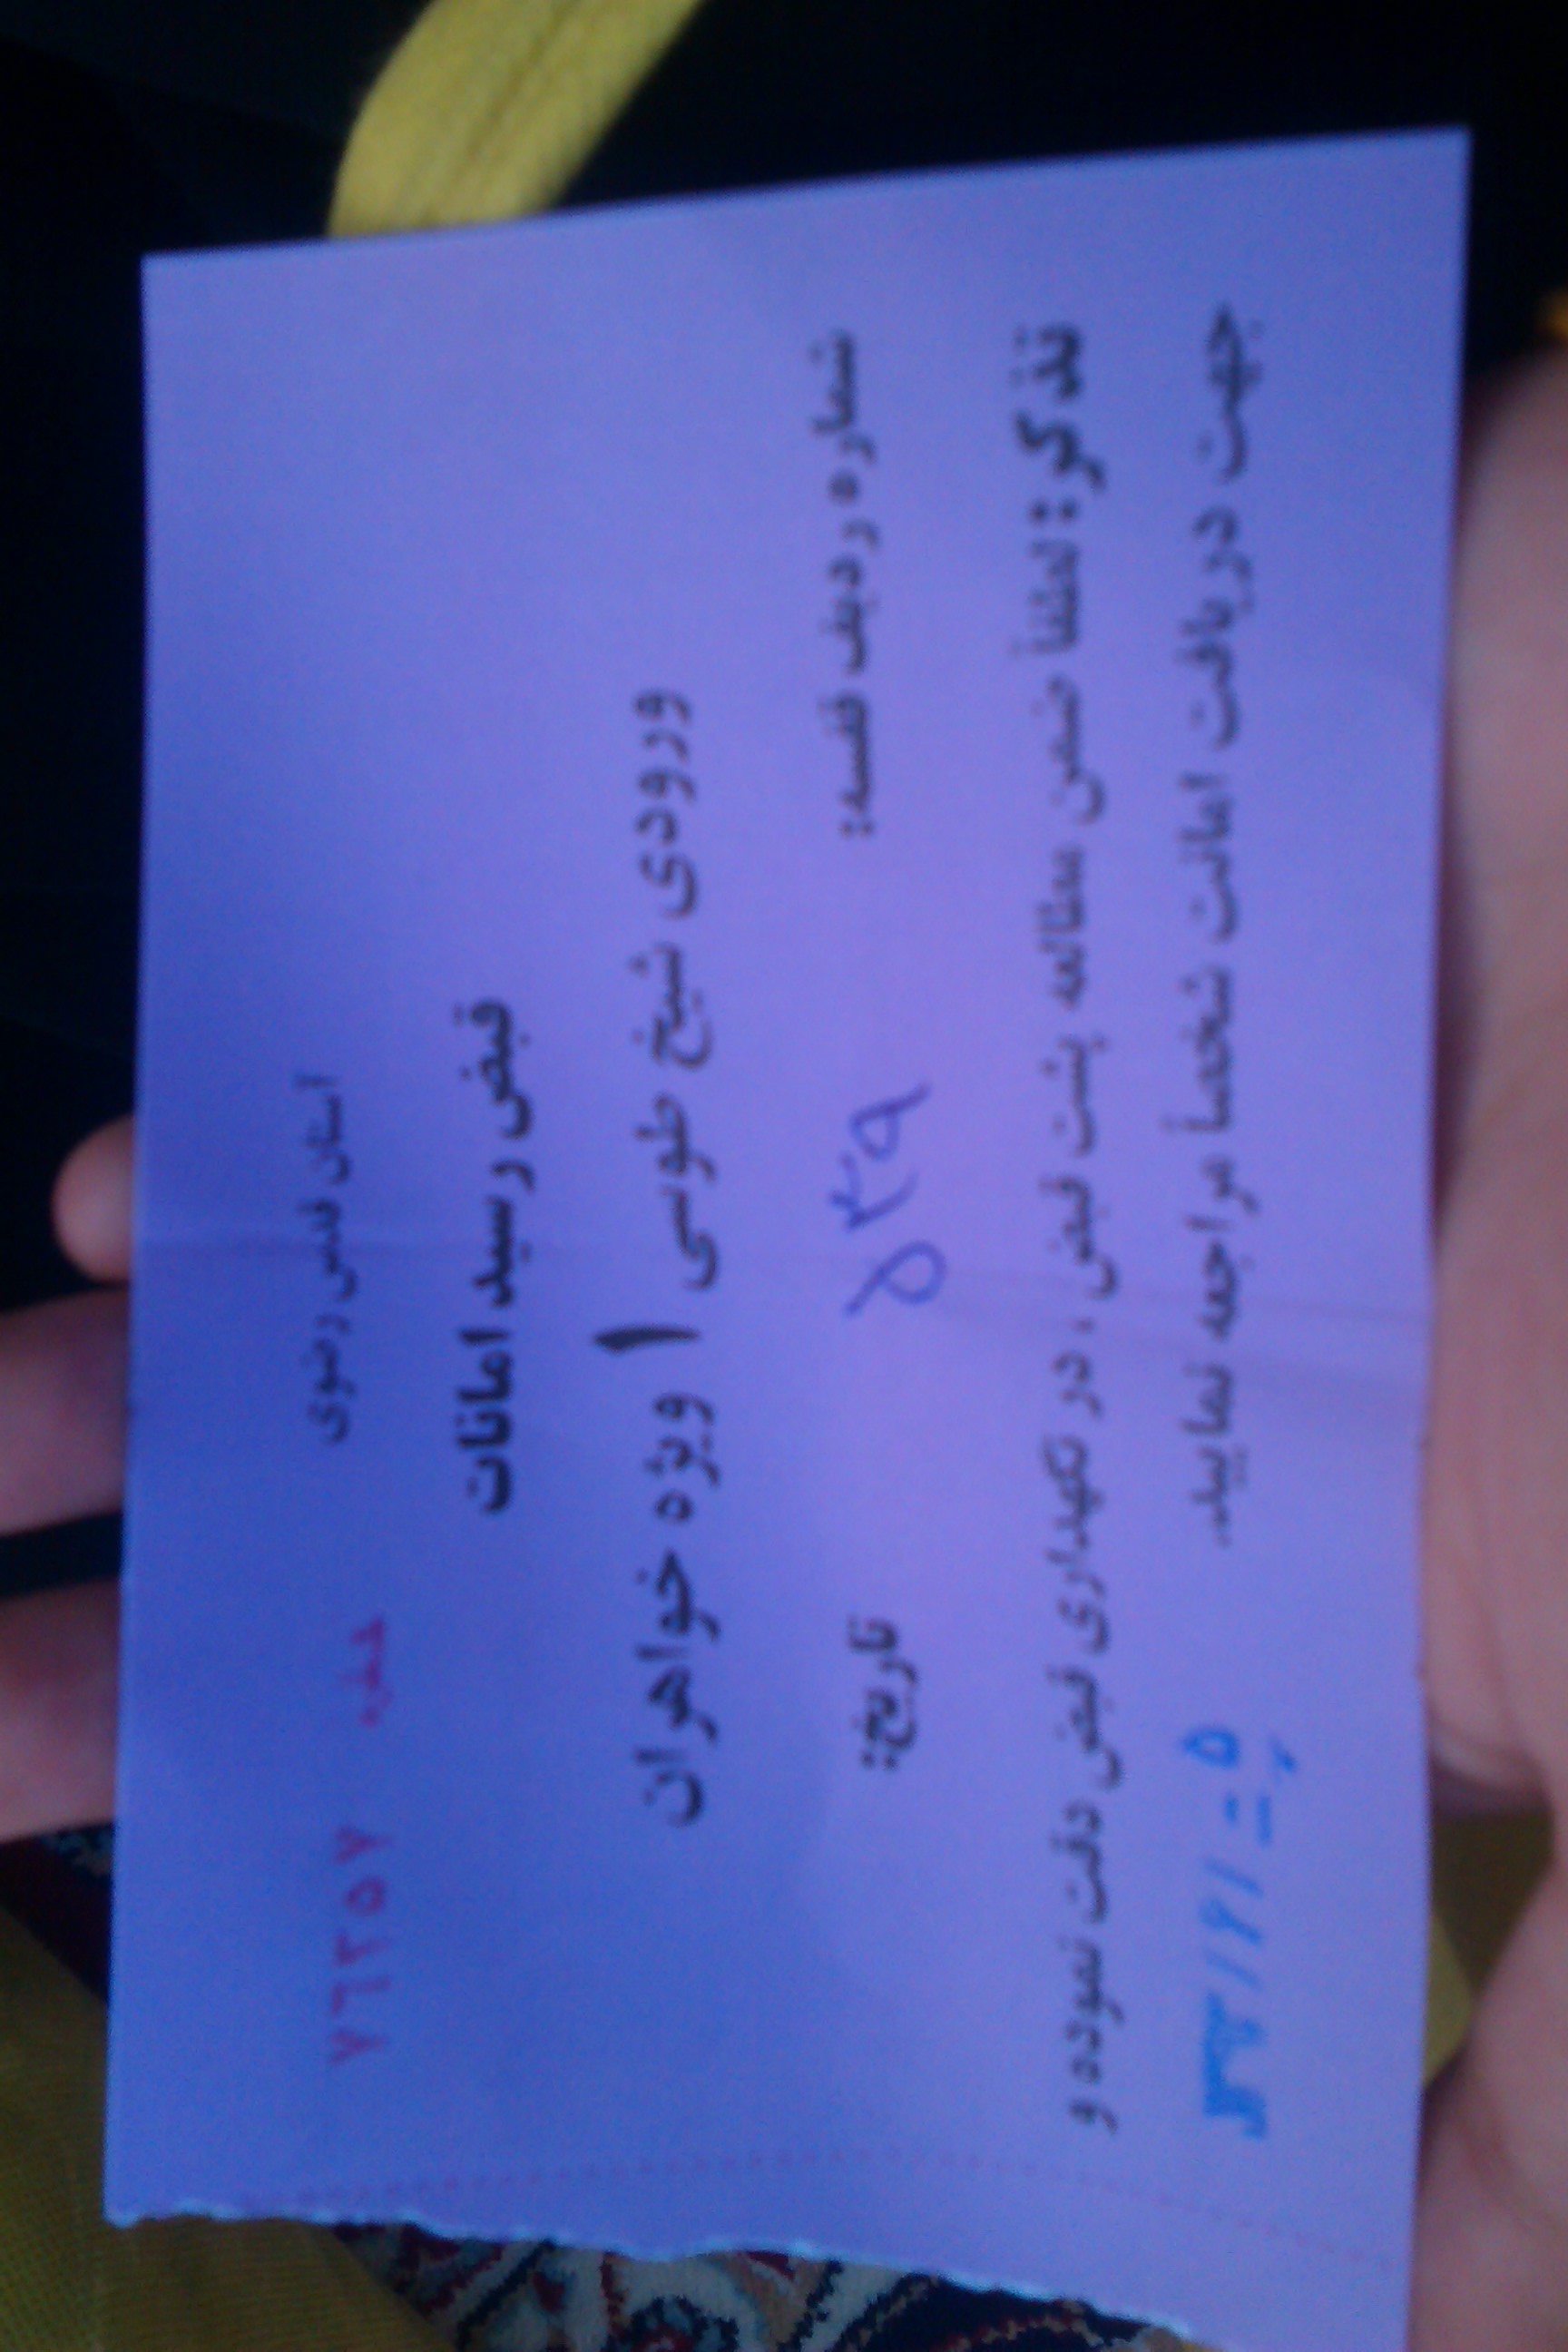 آستان قدس رضوی
۷۶۲۵۷
قبض رسید امانات
ورودی شیخ طوسی ۱ ویژه خواهران
شماره ردیف قفسه: ۵۳۹ تاریخ:
تذکر: لطفاً ضمن مطالعه پشت قبض، در نگهداری قبض دقت نموده و
جهت دریافت امانت شخصاً مراجعه نمایید.